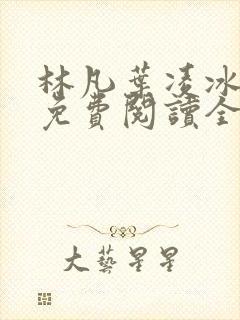 林凡葉凌冰
免費閱讀全
大藝星星